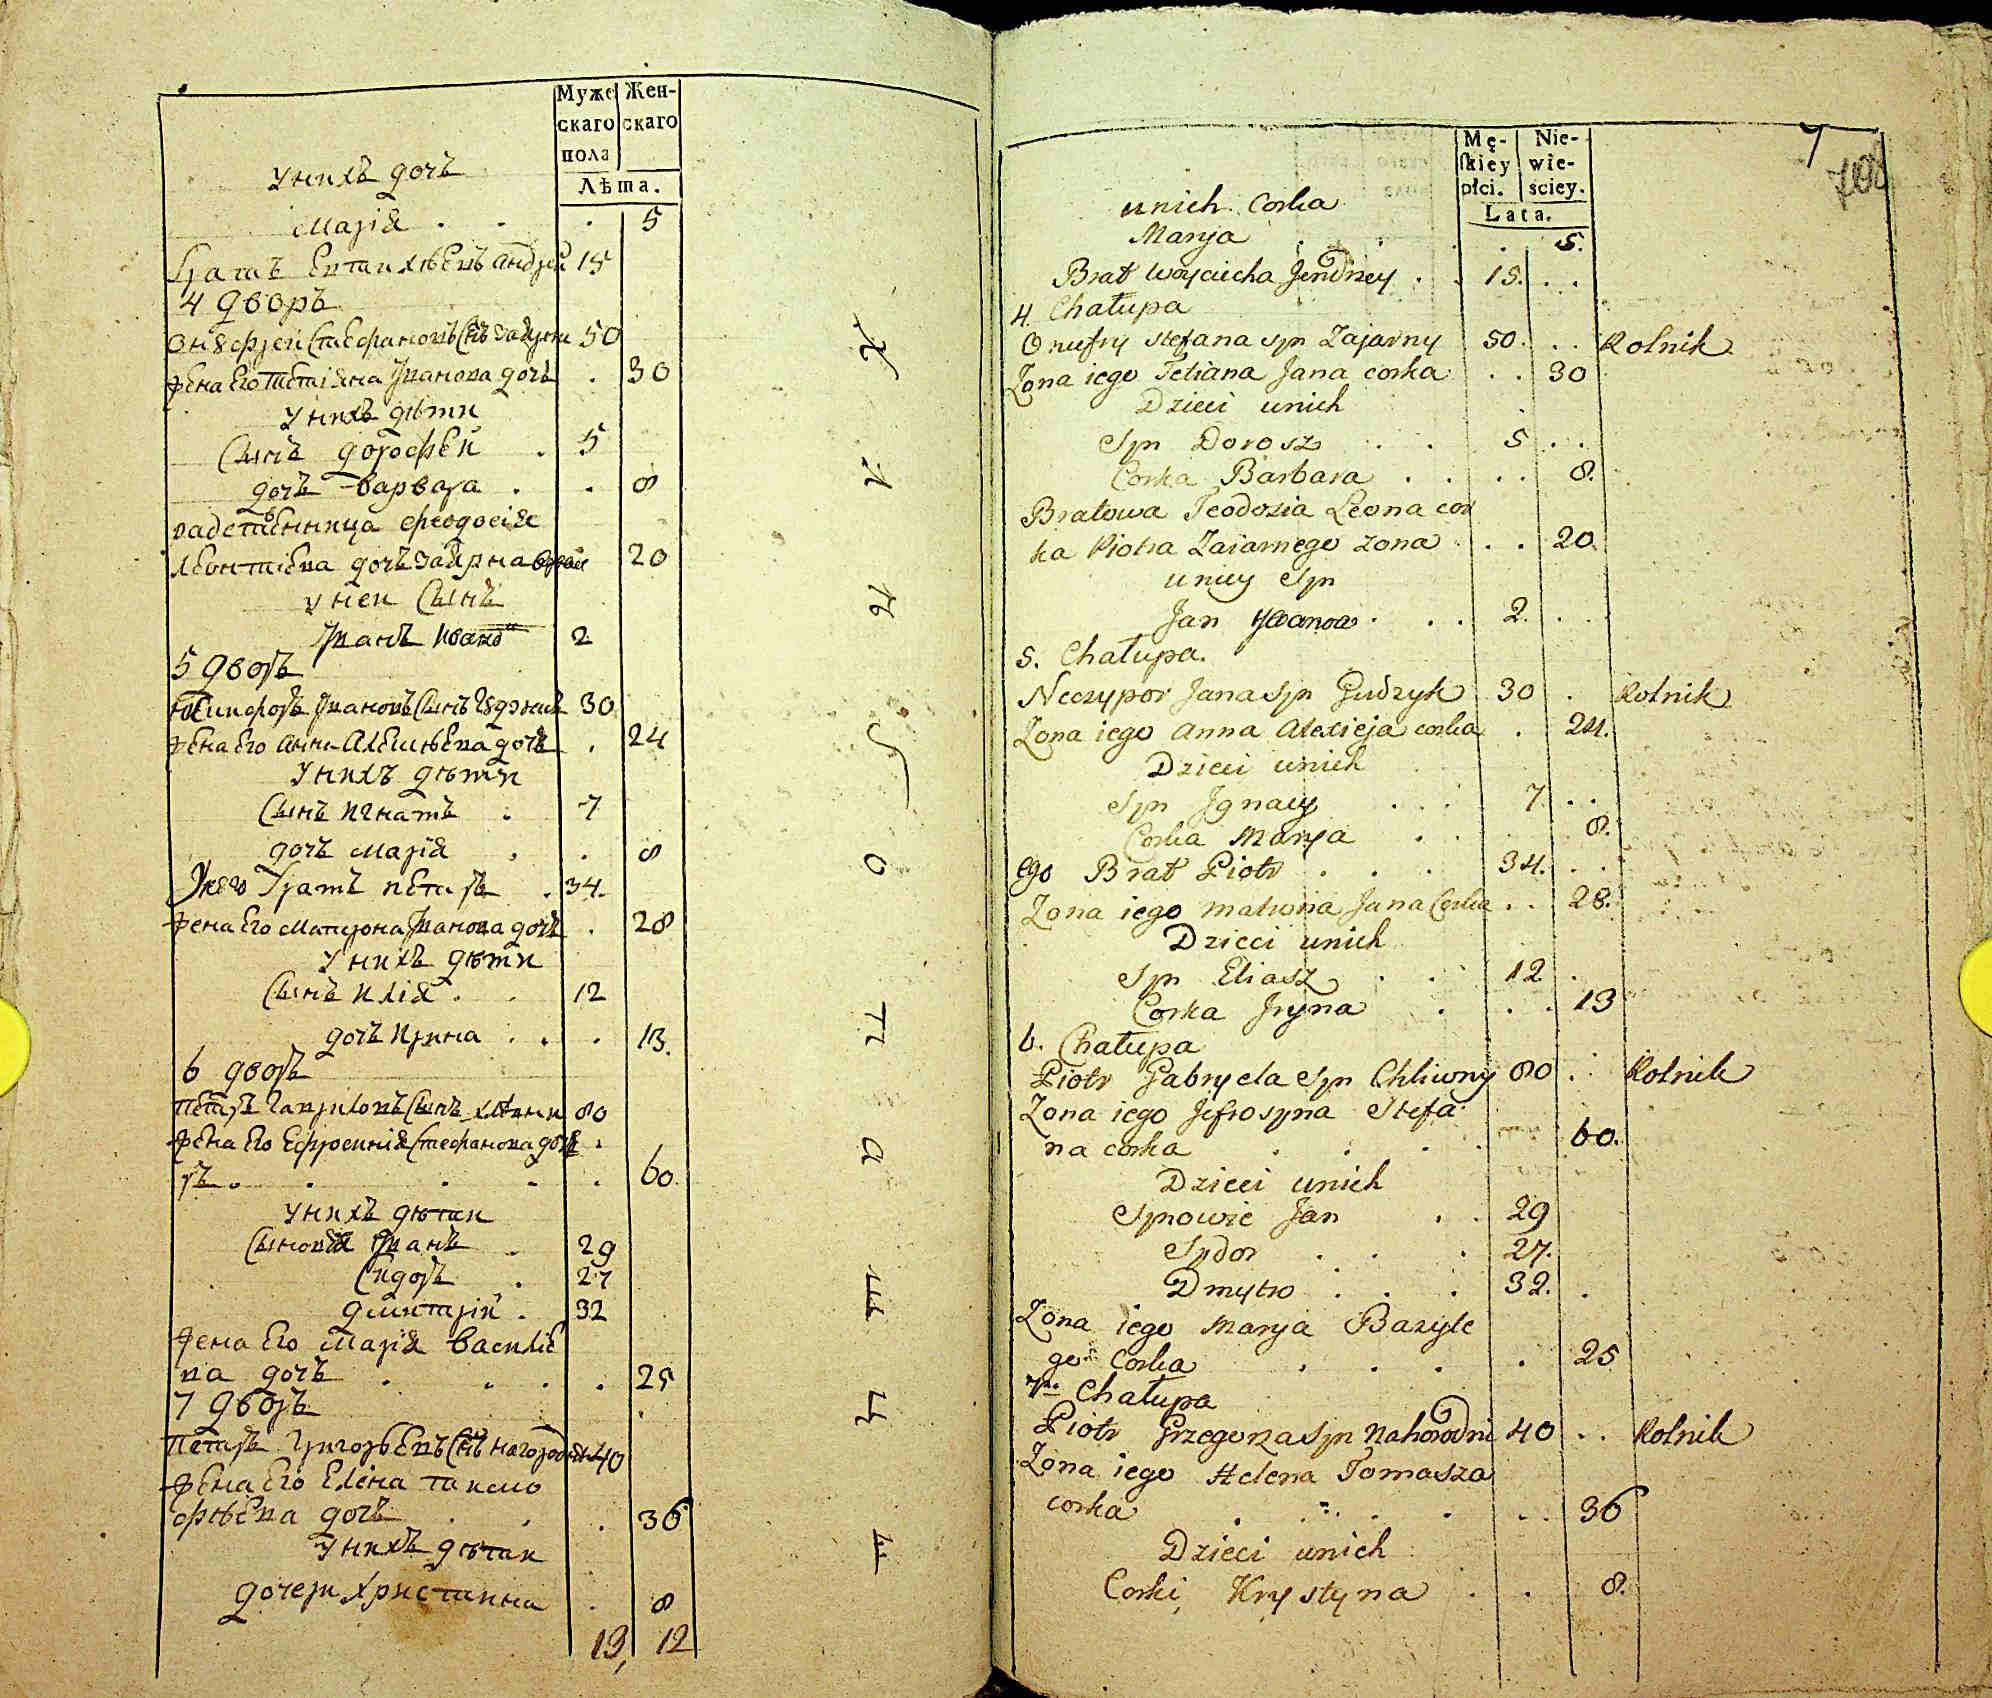 Муже Жен-
скаго скаго
пола
Лѣта.
У нихъ дочь
Марія . . . 5
Братъ Евтихѣевъ Андрей 15
4 дворъ
Онуфрей Стефановъ Снъ Заярны 50
Жена Его Тетіяна Иванова дочь . 30
У нихъ дѣти
Сынъ Дорофей . 5
дочь Варвара . . 8
Феодосія
Леонтіева дочь Заярна 20
У неи Сынъ
Иванъ 2
5 дворъ
Никифоръ Ивановъ Сынъ Гудзикъ 30
Жена Его Анна Алексѣева дочь . 24
У нихъ дѣти
Сынъ Игнатъ . 7
дочь Марія . . 8
У него Братъ Петръ . 34.
Жена Его Матрона Иванова дочь . 28
У нихъ дѣти
Сынъ Илія . . 12
дочь Ирина . . . 13.
6 дворъ
Петръ Гавриловъ Сынъ Хлѣвни 80
Жена Его Ефросинія Стефанова дочь .
ръ . . . . . 60.
У нихъ дѣти
Сыновія Иванъ . 29
Сидоръ . 27
Дмитрій . 32
Жена Его Марія Василіе
ва дочь . . . . 25
7 дворъ
Петръ Григорьевъ Снъ Нагородни 40
Жена Его Елена Тимо
фѣева дочь . . . 36
У нихъ дѣти
дочери Христина . 8
13, 12
Mę- Nie-
skiey wie-
płci. sciey.
Lata.
7
unich Corka
Marya . . . . 5.
Brat Woyciecha Jendrzey . . 15. . .
4. Chałupa
Onufry Stefana syn Zajarny 50. . . Rolnik
Zona iego Tetiana Jana corka . . 30
Dzieci unich
Syn Dorosz . . 5 . .
Corka Barbara . . . . 8.
Bratowa Teodozia Leona cor
ka Piotra Zaiarnego zona . . 20.
uniey Syn
Jan . . . 2. . .
5. Chałupa.
Neczypor Jana syn Gudzyk 30 . Rolnik
Zona iego Anna Alexieja corka . 24.
Dzieci unich
Syn Jgnacy . . . 7. . .
Corka Marya . . . 8.
ego Brat Piotr . . . 34. . .
Zona iego Matrona Jana Corka . . 28.
Dzieci unich
Syn Eliasz . . . 12 .
Corka Jryna . . . 13
6. Chałupa
Piotr Gabryela Syn Chliwny 80 . . Rolnik
Zona iego Jefrosyna Stefa
na corka . . . . 60.
Dzieci unich
Synowie Jan . . 29
Sydor . . . 27.
Dmytro . . . 32. .
Zona iego Marya Bazyle
go Corka . . . . 25
7. Chałupa
Piotr Grzegorza Syn Nahorodni 40 . . Rolnik
Zona iego Helena Tomasza
corka . . . . . 36
Dzieci unich
Corki, Krystyna . . 8.